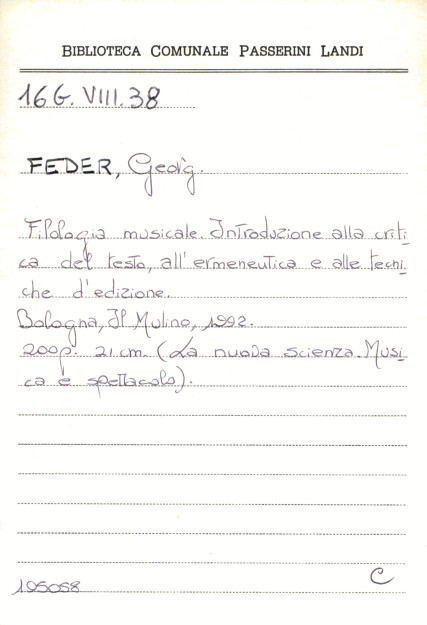 BIBLIOTECA COMUNALE PASSERINI LANDI
16 G. VIII. 38
FEDER, Georg.
Filologia musicale. Introduzione alla criti-
ca del testo, all'ermeneutica e alle tecni-
che d'edizione.
Bologna, Il Mulino, 1992.
200p. 21 cm. (La nuova scienza. Musi-
ca e spettacolo).
195058
C